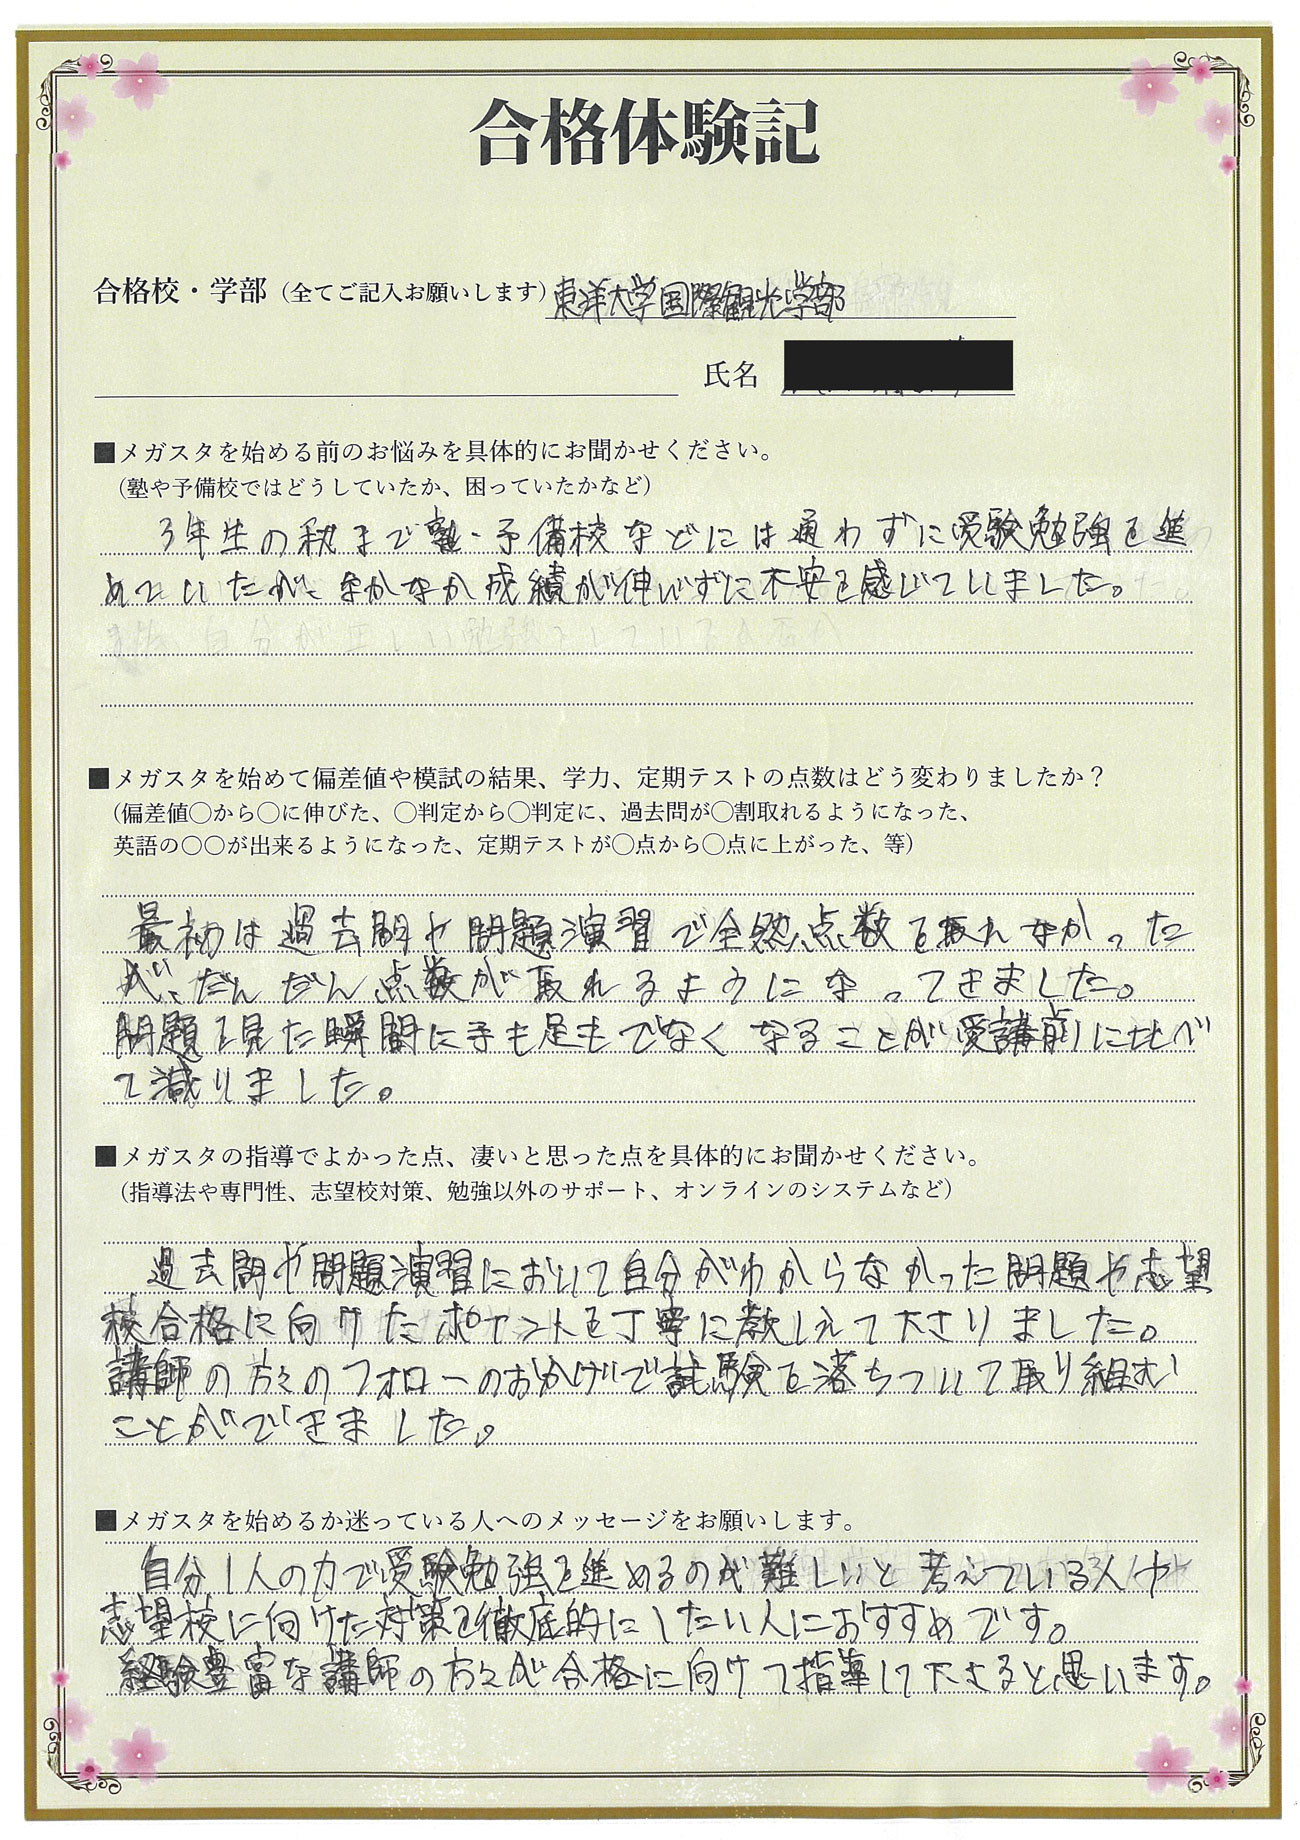 合格体験記
合格校・学部（全てご記入お願いします）東洋大学国際観光学部
氏名
■メガスタを始める前のお悩みを具体的にお聞かせください。
（塾や予備校ではどうしていたか、困っていたかなど）
3年生の秋まで塾・予備校などには通わずに受験勉強を進
めていたが、なかなか成績が伸びずに不安を感じていました。
■メガスタを始めて偏差値や模試の結果、学力、定期テストの点数はどう変わりましたか？
（偏差値〇から〇に伸びた、〇判定から〇判定に、過去問が〇割取れるようになった、
英語の〇〇が出来るようになった、定期テストが〇点から〇点に上がった、等）
最初は過去問や問題演習で全然点数を取れなかった
が、だんだん点数が取れるようになってきました。
問題を見た瞬間に手も足もでなくなることが受講前に比べ
て減りました。
■メガスタの指導でよかった点、凄いと思った点を具体的にお聞かせください。
（指導法や専門性、志望校対策、勉強以外のサポート、オンラインのシステムなど）
過去問や問題演習において自分がわからなかった問題や志望
校合格に向けたポイントを丁寧に教しえて下さりました。
講師の方々のフォローのおかげで試験を落ちついて取り組む
ことができました。
■メガスタを始めるか迷っている人へのメッセージをお願いします。
自分1人の力で受験勉強を進めるのが難しいと考えている人や
志望校に向けた対策を徹底的にしたい人におすすめです。
経験豊富な講師の方々が合格に向けて指導して下さると思います。